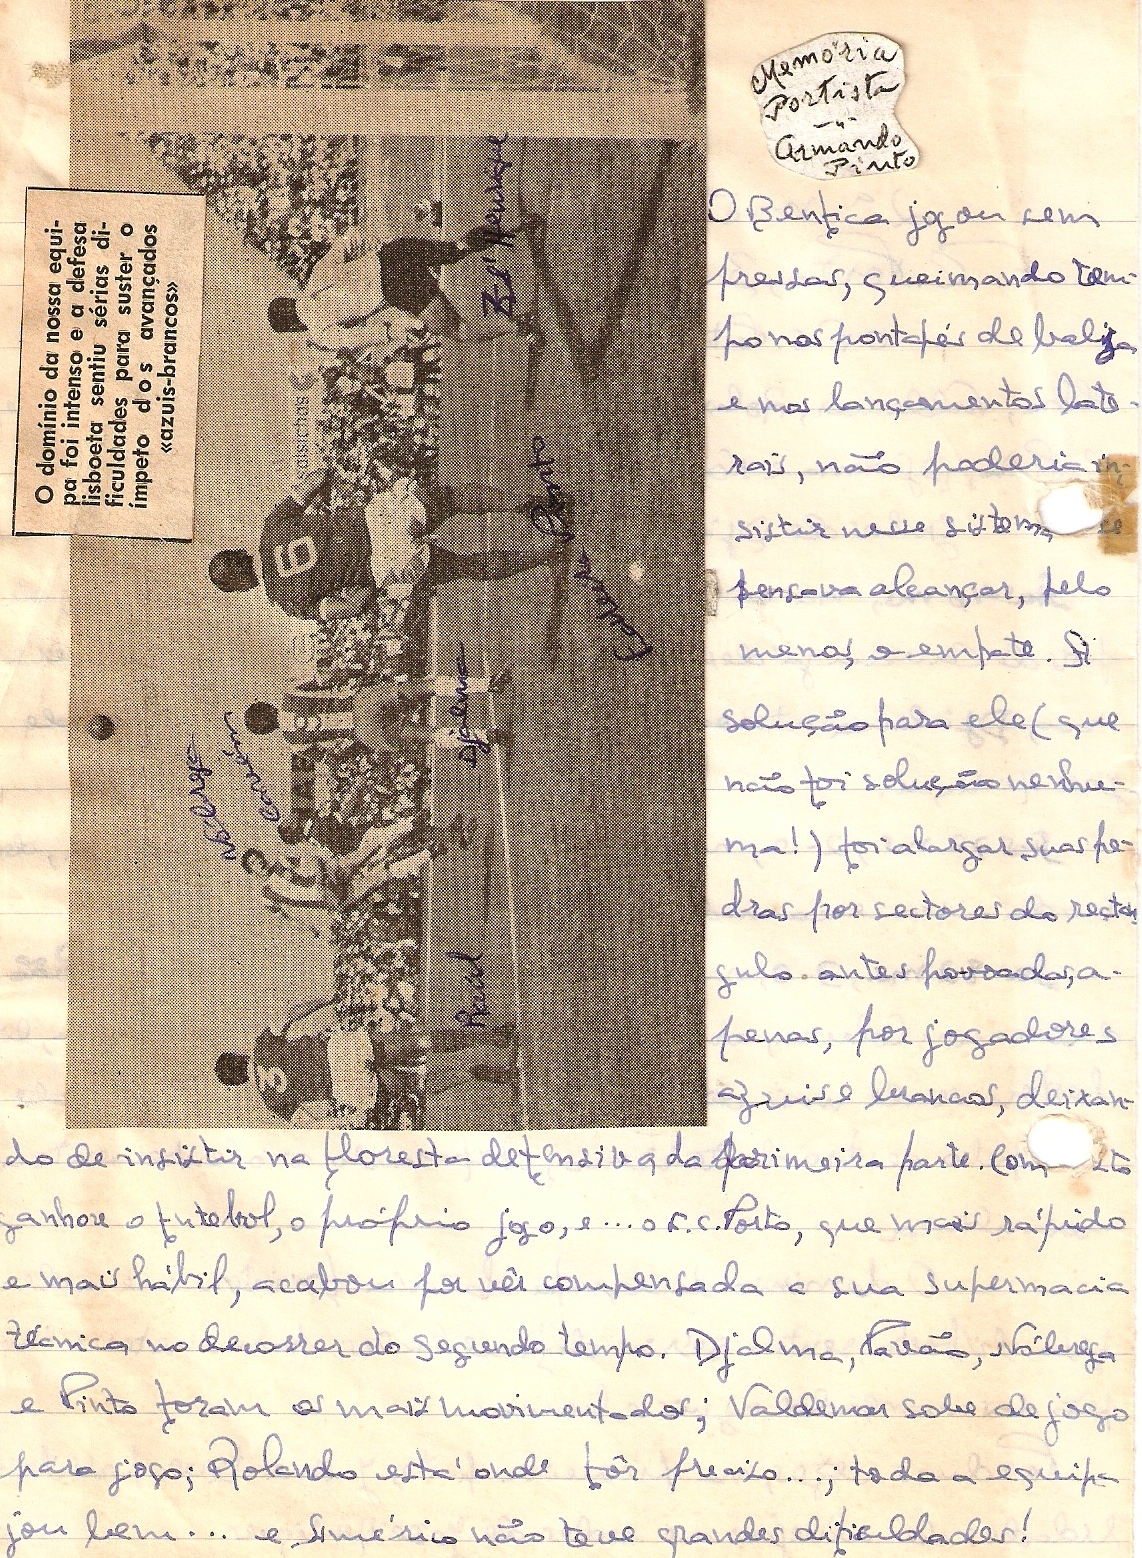 Memória
Portista
Armando
Pinto
O domínio da nossa equi-
pa foi intenso e a defesa
lisboeta sentiu sérias di-
ficuldades para suster o
ímpeto dos avançados
«azuis-brancos»
salsichas
Zé Henrique
6
Djalma
Nóbrega
Raúl
3
O Benfica jogou sem
pressas, queimando tem-
po nos pontapés de baliza
e nos lançamentos late-
rais, não poderia in-
sistir nesse sistema se
pensava alcançar, pelo
menos, o empate. A
solução para ele (que
não foi solução nenhu-
ma!) foi alargar suas pe-
dras por sectores do rectân
gulo antes povoados, a-
penas, por jogadores
azuis e brancos, deixan-
do de insistir na floresta defensiva da primeira parte. Com
ganhou o futebol, o próprio jogo, e... o F.C. Porto, que mais rápido
e mais hábil, acabou por vêr compensada a sua supermacia
técnica no decorrer do segundo tempo. Djalma, Pavão, Nóbrega
e Pinto foram os mais movimentados; Valdemar sobe de jogo
para jogo; Rolando está onde fôr preciso...; toda a equipa
jou bem... e Américo não teve grandes dificuldades!